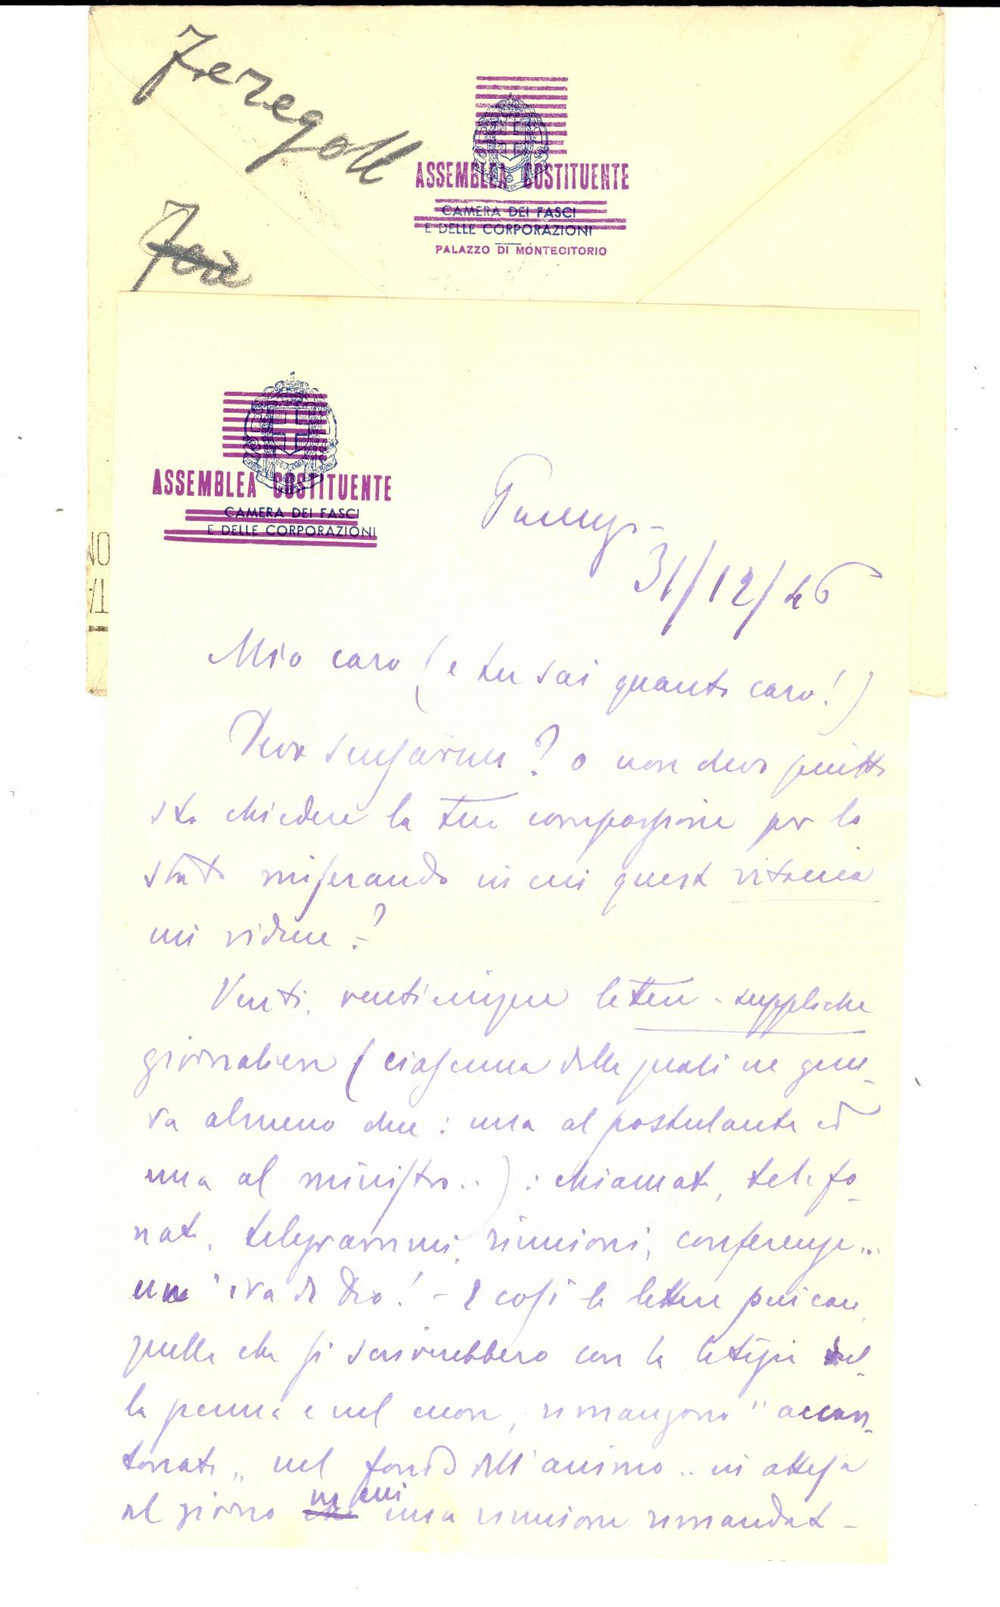 ASSEMBLEA COSTITUENTE
CAMERA DEI FASCI
E DELLE CORPORAZIONI
PALAZZO DI MONTECITORIO
ASSEMBLEA COSTITUENTE
CAMERA DEI FASCI
E DELLE CORPORAZIONI
31/12/46
Mio caro (e tu sai quanto caro!)
Devo scusarmi? o non devo piutto
sto chiedere la tua compassione per lo
stato miserando in cui questa vitaccia
mi riduce?
Venti, venticinque lettere-suppliche
giornaliere (ciascuna delle quali ne gene-
ra almeno due: una al postulante ed
una al ministro..): chiamate, telefo-
nate, telegrammi, riunioni, conferenze...
un'ira di Dio! - E così le lettere più care,
quelle che si scriverebbero con la letizia nel-
la penna e nel cuore, rimangono "accan-
tonate" nel fondo dell'animo.. in attesa
del giorno in cui una riunione rimandata -